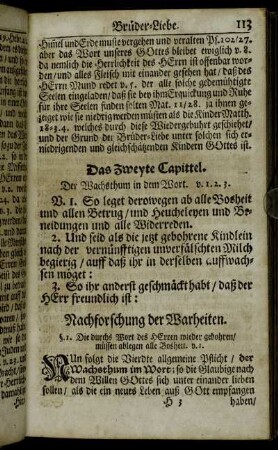 Brüder-Liebe. 113
Himel und Erde muste vergehen und veralten Ps.102/27.
aber das Wort unseres GOttes bleibet ewiglich v. 8.
da nemlich die Herrlichkeit des HErrn ist offenbar worden/
und alles Fleisch mit einander gesehen hat/ daß des
HErrn Mund redet v. 5. der alle solche gedemüthigte
Seelen eingeladen/ daß sie bey ihme Erquickung und Ruhe
für ihre Seelen finden solten Mat. 11/28. ja ihnen gezeiget
wie sie niedrig werden müsten als die Kinder Matth.
18-3.4. welches durch diese Wiedergebuhrt geschiehet/
und der Grund der Brüder-Liebe unter solchen sich erniedrigenden
und gleichschätzenden Kindern GOttes ist.
Das Zweyte Capittel.
Der Wachsthum in dem Wort. v. 1. 2. 3.
V. 1. So leget derowegen ab alle Bosheit
und allen Betrug/ und Heucheleyen und Beneidungen
und alle Widerreden.
2. Und seid als die jetzt gebohrene Kindlein
nach der vernünfftigen unverfälschten Milch
begierig/ auff daß ihr in derselben auffwachsen
möget:
3. So ihr anderst geschmäckt habt/ daß der
HErr freundlich ist:
Nachforschung der Warheiten.
§. 1. Die durchs Wort des HErren wieder gebohren/
müssen ablegen alle Bosheit. v. 1.
NUn folgt die Vierdte allgemeine Pflicht/ der
Wachsthum im Wort: so die Glaubige nach
dem Willen GOttes sich unter einander lieben
sollen/ als die ein neues Leben auß GOtt empfangen
H 5 haben/